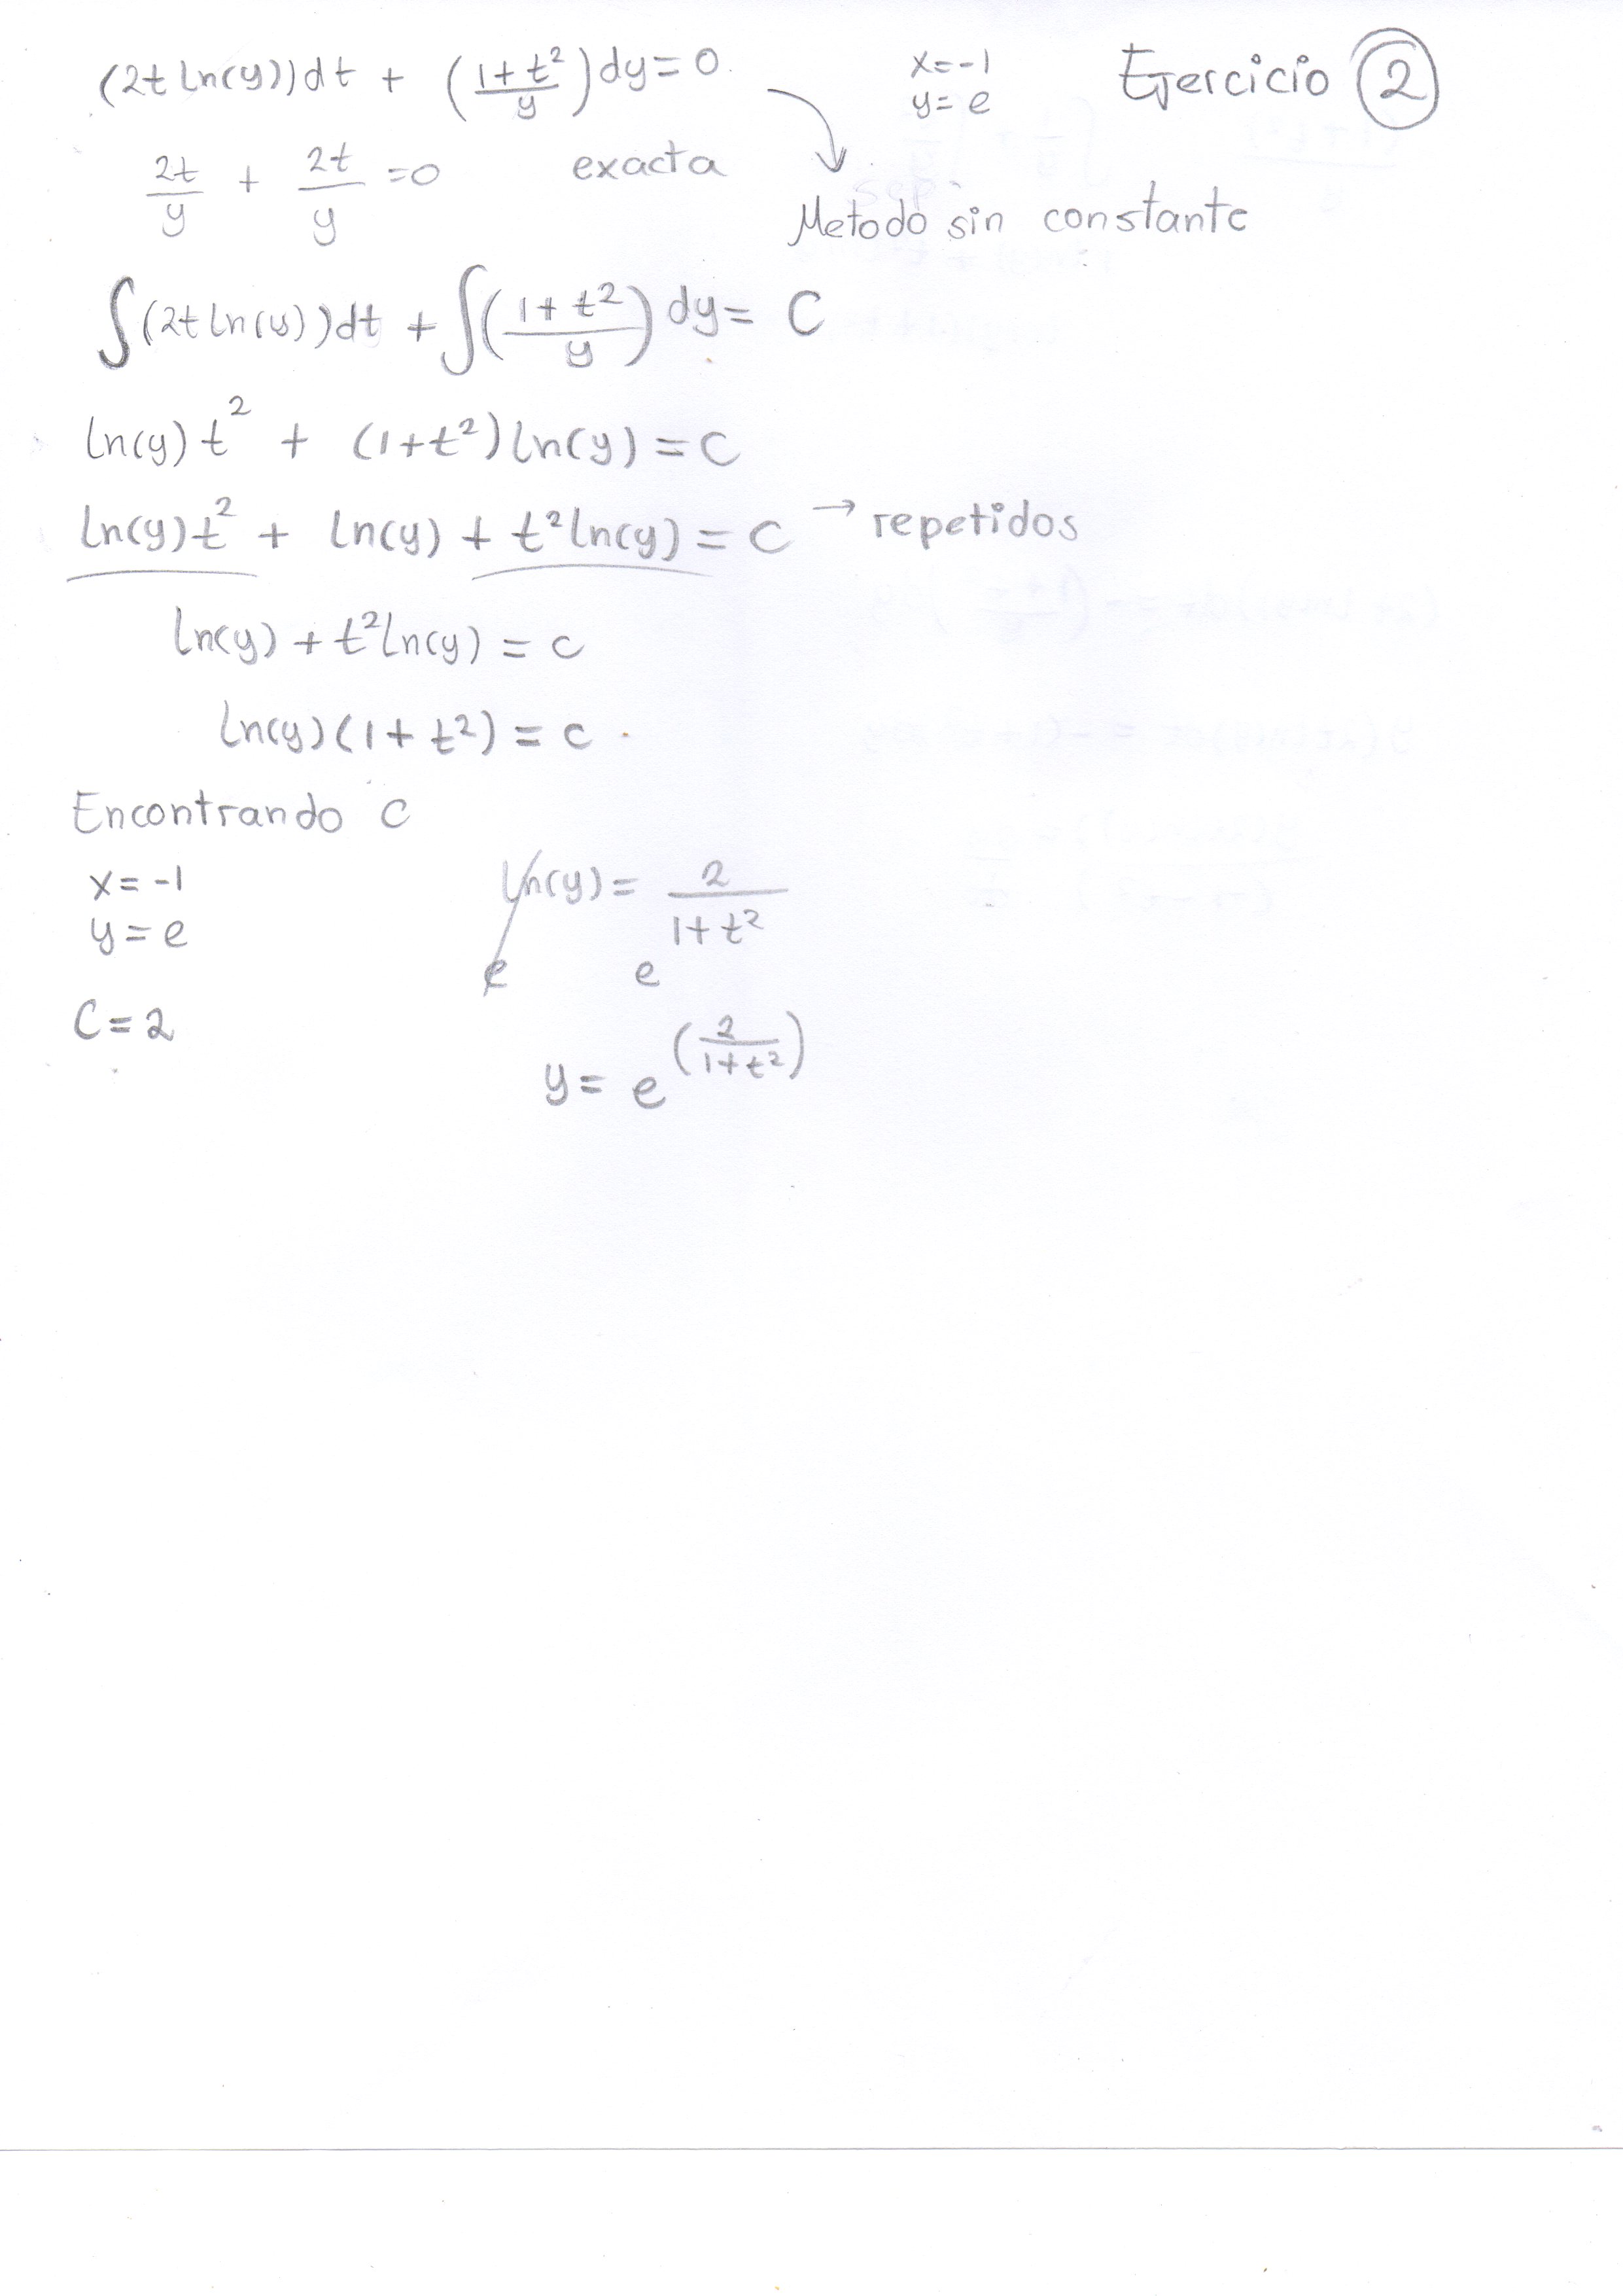 (2t ln(y))dt + ((1+t²)/y)dy=0. x=-1 Ejercicio 2
y=e
2t/y + 2t/y =0 exacta
Metodo sin constante
∫(2t ln(y))dt + ∫((1+t²)/y)dy= C
ln(y)t² + (1+t²)ln(y)=C
ln(y)t² + ln(y) + t²ln(y) = C → repetidos
ln(y) + t²ln(y) = c
ln(y)(1+t²) = c
Encontrando C
x=-1
y=e
C=2
ln(y)= 2/(1+t²)
e e
y= e^(2/(1+t²))